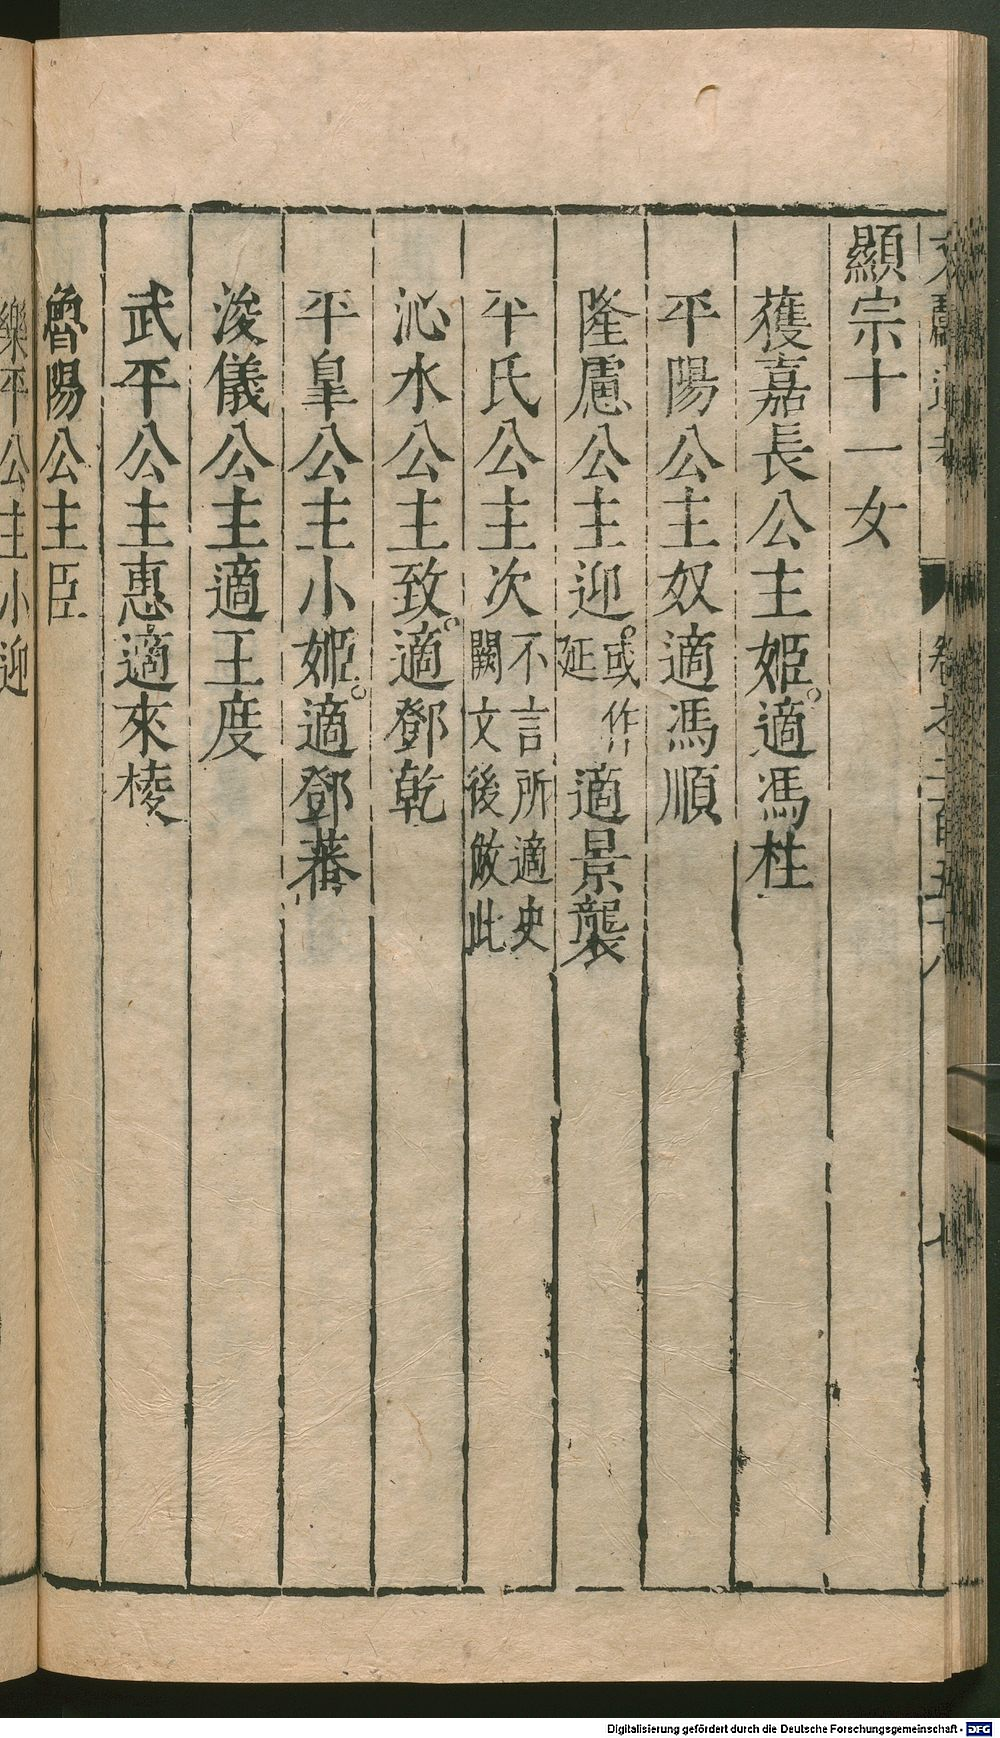 卷之二百五十八
顯宗十一女
獲嘉長公主姬適馮柱
平陽公主奴適馮順
隆慮公主迎或作延適景襲
平氏公主次不言所適史闕文後倣此
沁水公主致適鄧乾
平皐公主小姬適鄧蕃
浚儀公主適王度
武平公主惠適來棱
魯陽公主臣
樂平公主小迎
Digitalisierung gefördert durch die Deutsche Forschungsgemeinschaft - DFG